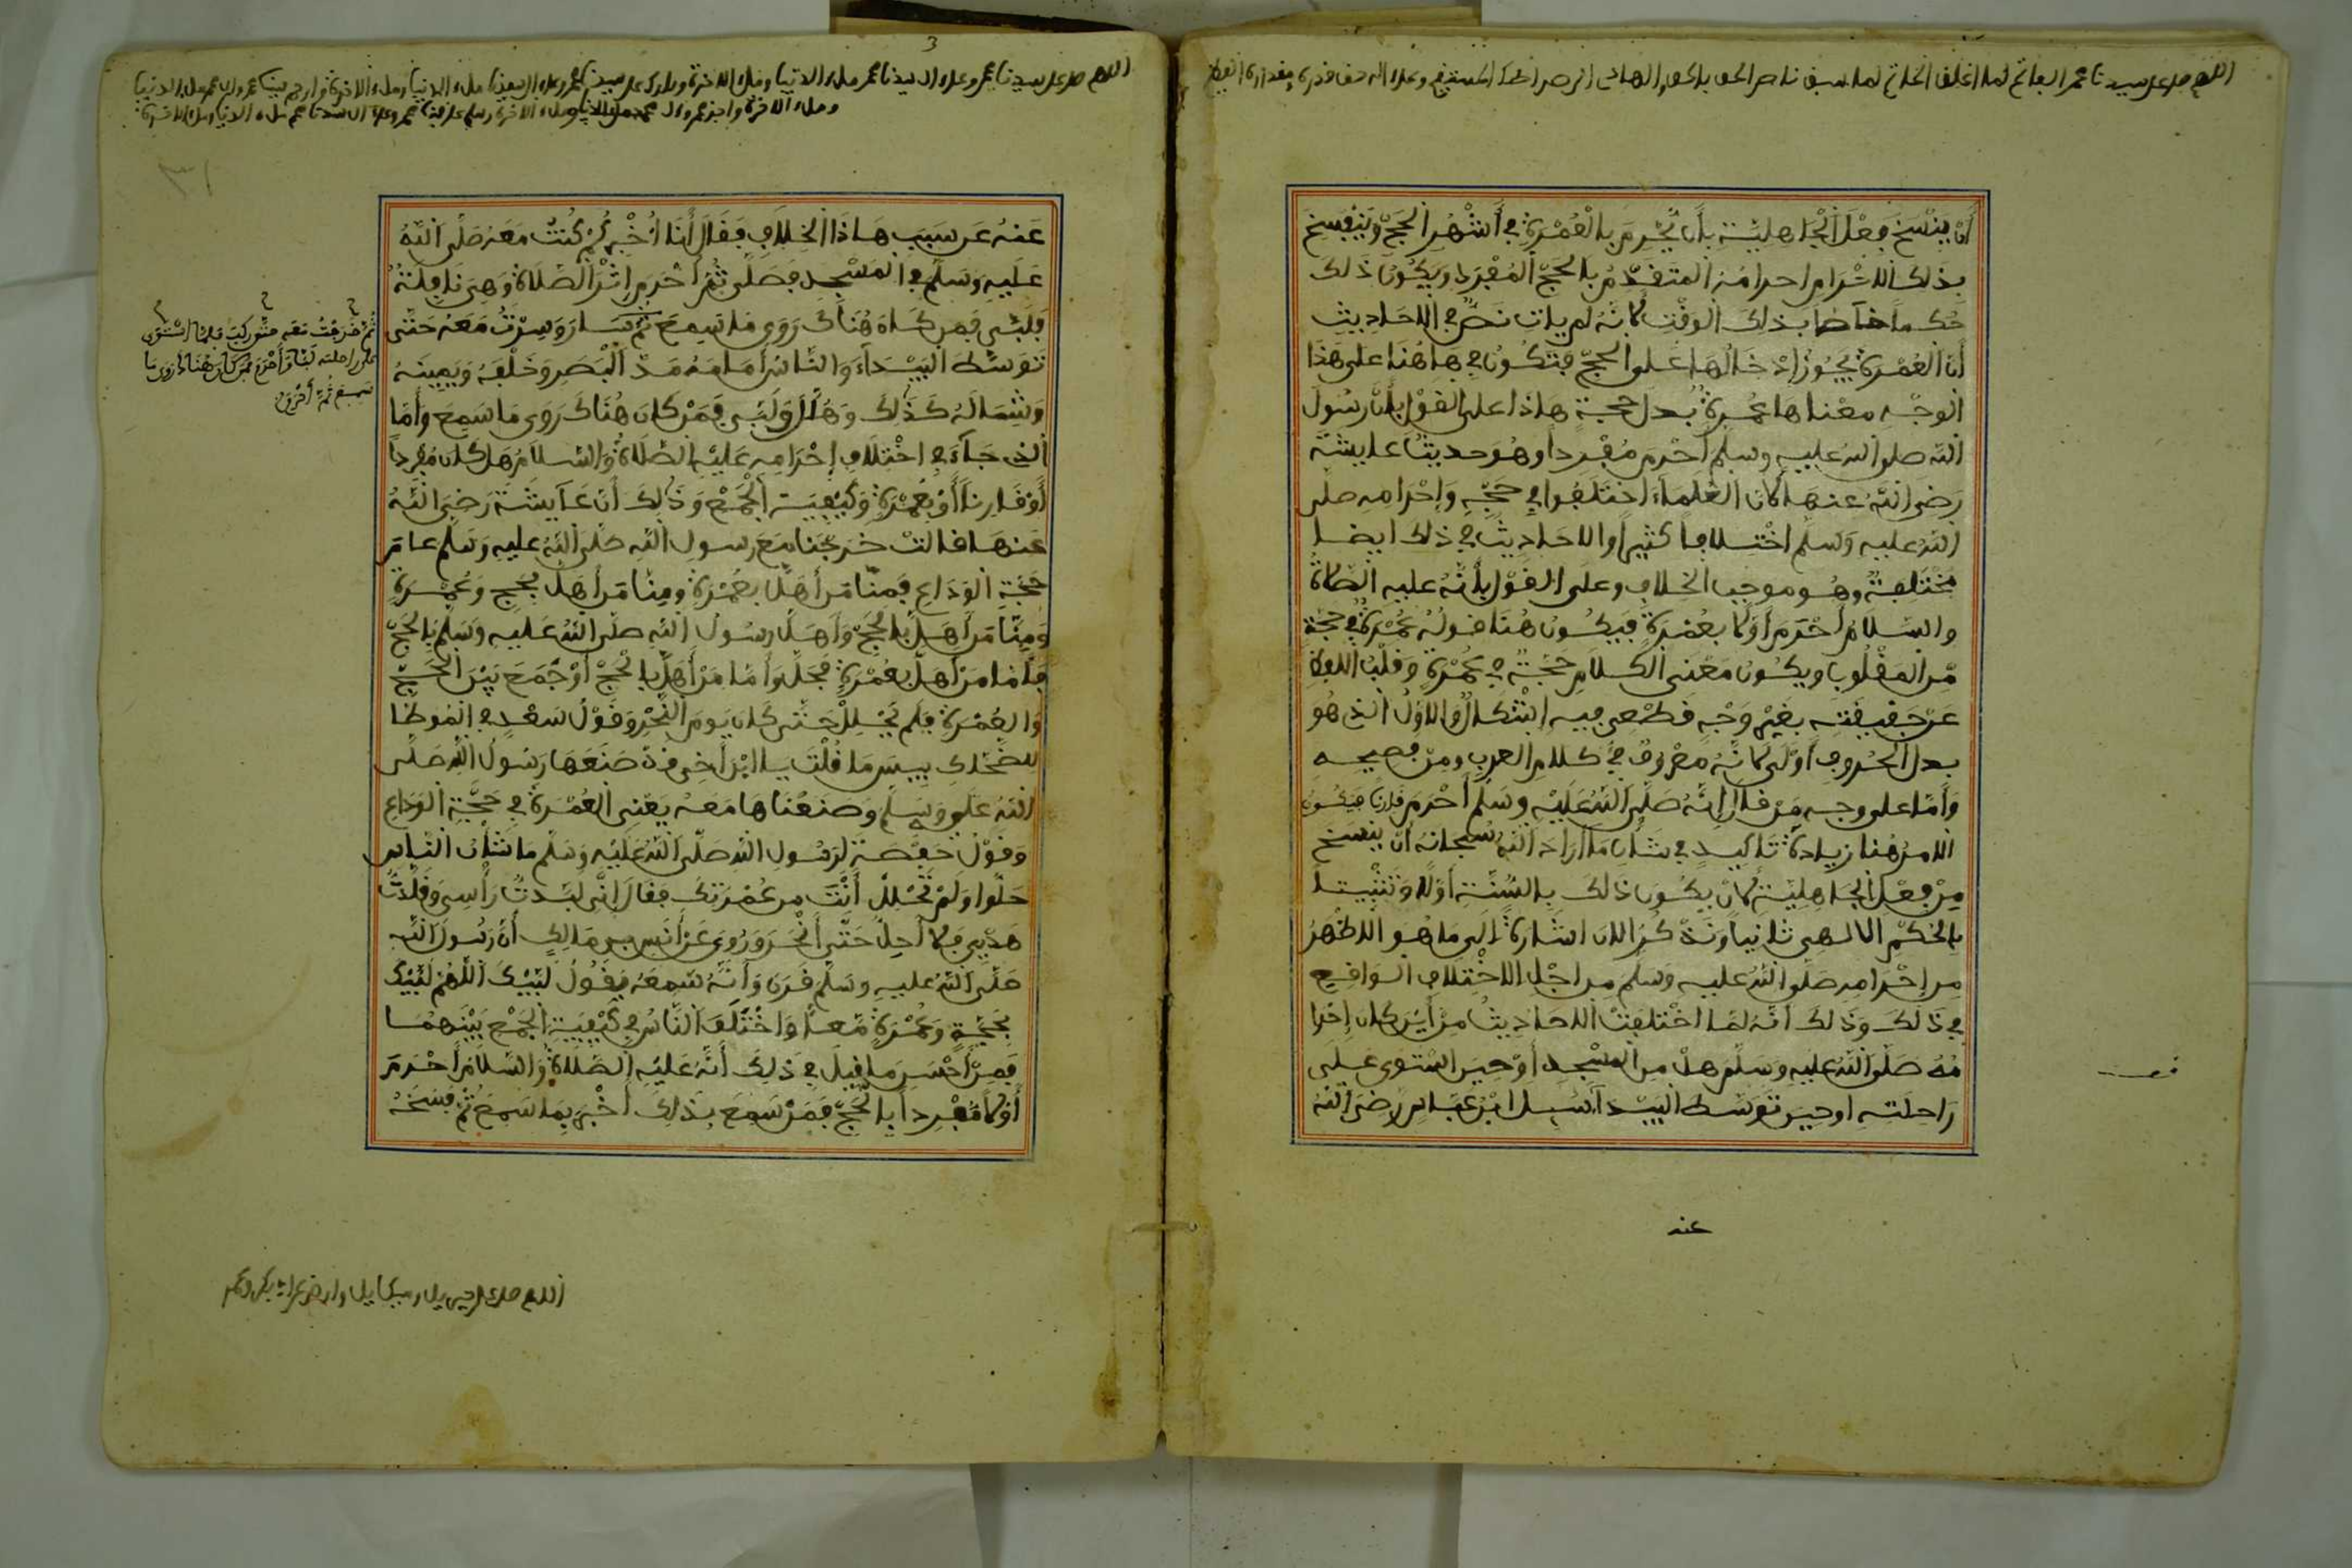 اللهم صل على سيدنا محمد الفاتح لما اغلق الخاتم لما سبق ناصر الحق بالحق والهادي الى صراطك المستقيم وعلى اله حق قدره ومقداره العظيم
أن ينسخ فعل الجاهلية بأن يُحرم بالعُمْرة في أشهُر الحجّ وينفسخ
بذلك الاحرام احرامُه المتقدّم بالحجّ المُفرد ويكُون ذلك
حُكماً خاصا بذلك الوقت لأنه لم يات نصٌّ في الاحاديث
أن العُمْرة يجُوز إدْخالُها على الحجّ فتكُون في هاهُنا على هذا
الوجْه معْناها عُمرةٌ بدل حجة هاذا على القوْل بأن رسُول
الله صلى الله عليه وسلم أحْرم مُفْرداً وهُو حديث عايشة
رضي الله عنها لأن العُلماء اختلفُوا في حجّه وإحْرامه صلى
الله عليه وسلم اخْتلافا كثيرا والاحاديثُ في ذلك ايضا
مُخْتلفةٌ وهُو موجب الخلاف وعلى القوْل بأنّه عليه الصلاة
والسّلام أحْرم أوّلا بعُمْرة فيكُون هُنا قولُه عُمْرةٌ في حجة
من المقْلُوب ويكُون معْنى الكلام حجّةٌ في عُمْرة وقلْبُ اللفظ
عن حقيقته بغيْر وجْه قطْعي فيه إشْكالٌ والاوّلُ الذي هُو
بدل الحُروف أوْلى لأنّه معْرُوف في كلام العرب ومن فصيحه
وأمّا على وجه من قال إنّه صلّى الله عليْه وسلم أحْرم قارنا فيكُون
الامرُ هُنا زيادة تاكيد في شأن ما أراد اللهُ سُبحانه أن ينسخ
منْ فعْل الجاهليّة لأنْ يكُون ذلك بالسُّنّة أوّلا وتثْبيتاً
بالحُكْم الالهي ثانياً ونذْكُرُ الان اشارةً إلى ما هُو الاظْهرُ
من إحْرامه صلى الله عليه وسلم من اجْل الاخْتلاف الواقع
في ذلك وذلك أنّه لمّا اخْتلفت الاحاديثُ من أيْن كان إحْرا
مُهُ صلّى الله عليه وسلم هلْ من المسْجد أوْ حين اسْتوى على
راحلته او حين توسّط البيْدا سُئل ابْن عبّاس رضي الله
عنه
اللهم صل على سيدنا محمد وعلى ال سيدنا محمد ملء الدنيا وملء الاخرة وبارك على سيدنا محمد وعلى ال سيدنا ملء الدنيا وملء الاخرة وارحم سيدنا محمد وال محمد ملء الدنيا
وملء الاخرة واجز محمد وال محمد ملء الدنيا وملء الاخرة وسلم على سيدنا محمد وعلى ال سيدنا محمد ملء الدنيا وملء الاخرة
٣١
عنه عن سبب هاذا الخلاف فقال أنا أُخْبركُم كُنتُ معه صلّى الله
عليه وسلم في المسْجد فصلّى ثُمّ أحْرم إثْر الصّلاة وهي نافلةٌ
فلبّى فمن كان هُناك روى ما سمع ثم سار وسرْتُ معه حتّى
توسّط البيْداء والنّاسُ أمامهُ مدّ البصر وخلْفه ويمينه
وشماله كذلك وهلّل ولبّى فمنْ كان هُناك روى ما سمع وأما
الذي جاء في اختلاف إحْرامه عليْه الصّلاةُ والسّلام هل كان مُفْرداً
أوْ قارناً أوْ بعُمْرة وكيْفية الجمْع وذلك أن عايشة رضي الله
عنها قالتْ خرجْنا مع رسول الله صلّى الله عليه وسلم عام
حجّة الوداع فمنّا من أهلّ بعُمْرة ومنّا من أهلّ بحج وعُمْرة
ومنّا من أهلّ بالحجّ وأهلّ رسُولُ الله صلّى الله عليه وسلم بالحجّ
فأمّا من أهلّ بعُمْرة فحلّ وأمّا من أهلّ بالحجّ أوْ جمع بيْن الحجّ
والعُمْرة فلم يُحْللْ حتّى كان يوم النّحْر وقوْلُ سعْد في المُوطّا
للضّحّاك بيس ما قُلْت يا ابْن أخي قدْ صنعها رسُولُ الله صلّى
الله عليه وسلم وصنعْناها معه يعْني العُمْرة في حجّة الوداع
وقوْلُ حفْصة لرسُول الله صلّى الله عليْه وسلم ما شأنُ النّاس
حلّوا ولمْ تحْللْ أنْت من عُمْرتك فقال إنّي لبّدتُ رأْسي وقلّدْتُ
هدْيي فلا أحلّ حتّى أنْحر ورُوي عن أنس بن مالك أن رسُول الله
صلّى الله عليه وسلم قرن وأنّه سمعه يقُولُ لبّيْك اللهُمّ لبّيْك
بحجّة وعُمْرة معاً واخْتلف النّاسُ في كيْفيّة الجمْع بيْنهُما
فمنْ أحْسن ما قيل في ذلك أنّه عليْه الصّلاةُ والسّلام أحْرم
أوّلا مُفْرداً بالحجّ فمنْ سمع بذلك أخْبر بما سمع ثُمّ فسخهُ
ثُمّ خرجْتُ معه حتّى ركب فلمّا اسْتوى
على راحلته لبّا وأحْرم فمن كان هُناك روى ما
سمع ثُمّ
اللهم صل على جبريل وميكايل وارض عن ابي بكر وعمر